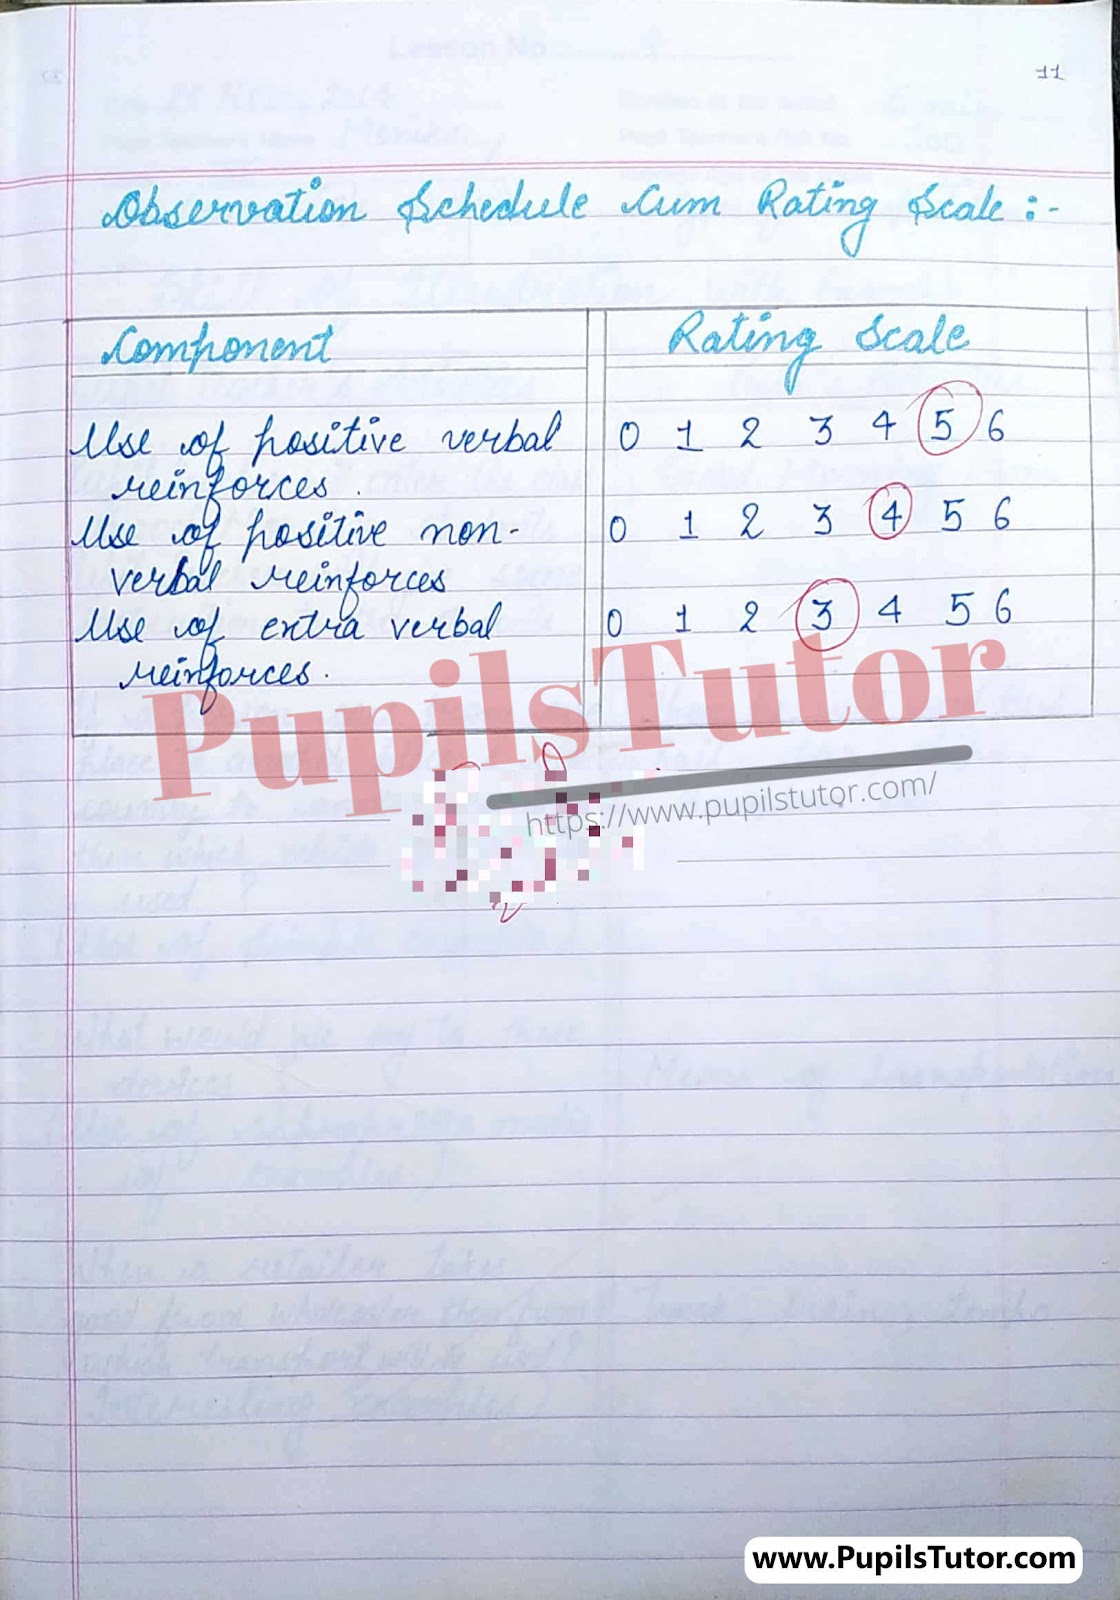 11
Observation Schedule Cum Rating Scale :-
Component Rating Scale
Use of positive verbal 0 1 2 3 4 5 6
reinforces.
Use of positive non- 0 1 2 3 4 5 6
verbal reinforces
Use of extra verbal 0 1 2 3 4 5 6
reinforces.
PupilsTutor
https://www.pupilstutor.com/
www.PupilsTutor.com